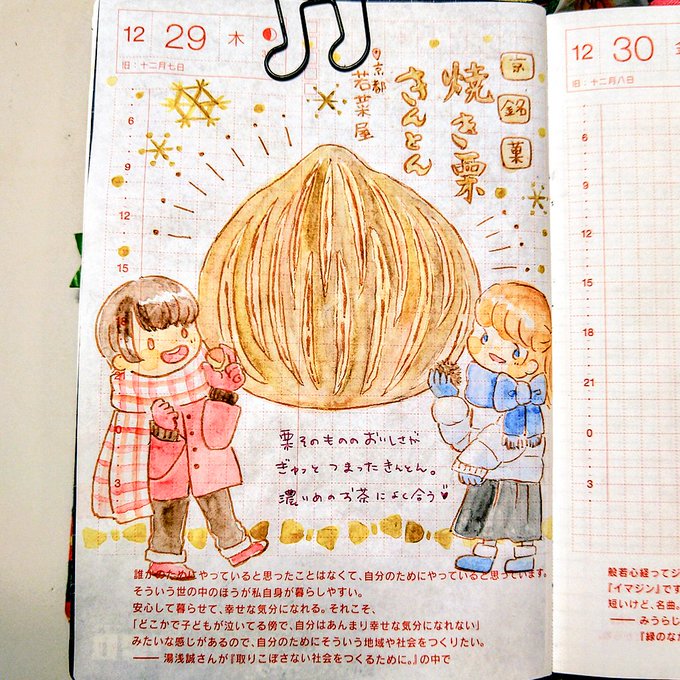 12 29 木
旧：十二月七日
京銘菓
焼き栗
きんとん
京都
若菜屋
6
9
12
15
18
0
3
栗そのもののおいしさが
ぎゅっとつまったきんとん。
濃いめのお茶によく合う♥
誰かのためにやっていると思ったことはなくて、自分のためにやっていると思っています。
そういう世の中のほうが私自身が暮らしやすい。
安心して暮らせて、幸せな気分になれる。それこそ、
「どこかで子どもが泣いてる傍で、自分はあんまり幸せな気分になれない」
みたいな感じがあるので、自分のためにそういう地域や社会をつくりたい。
── 湯浅誠さんが『取りこぼさない社会をつくるために。』の中で
12 30 金
旧：十二月八日
6
9
12
15
18
21
0
3
般若心経ってジ
『イマジン』です
短いけど、名曲。
── みうらじ
『緑のなか